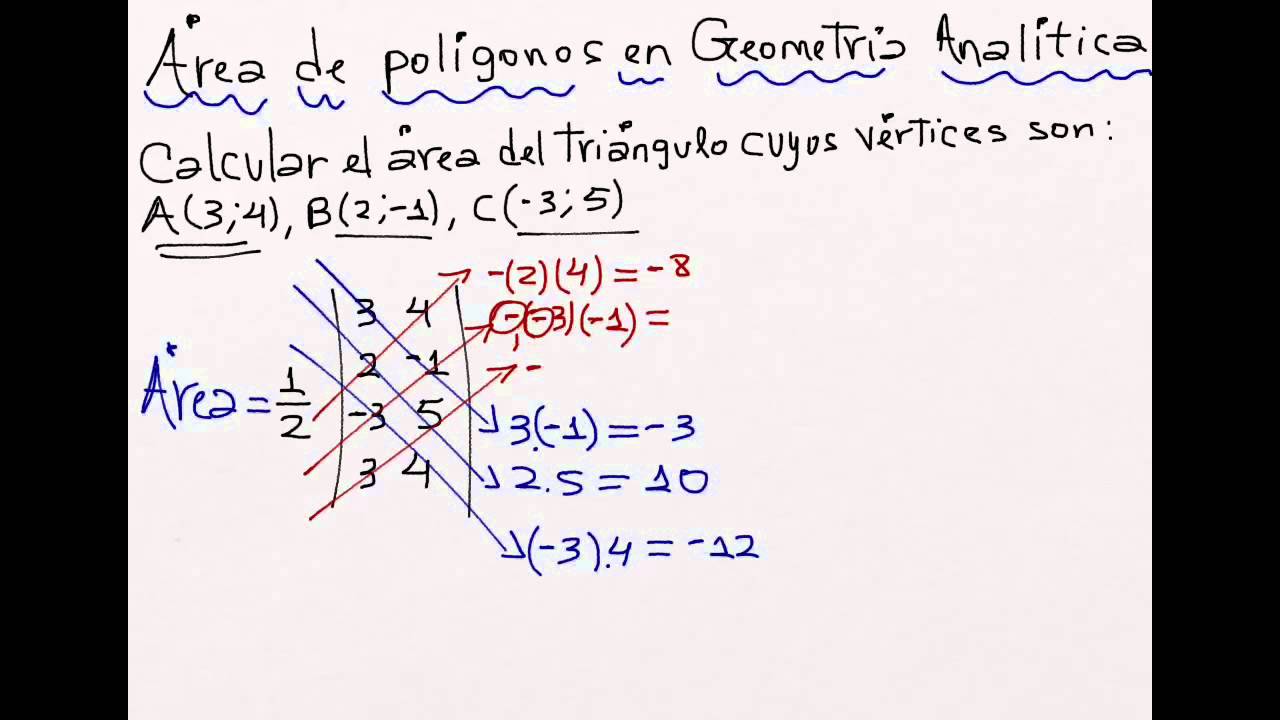 Área de polígonos en Geometría Analítica
Calcular el área del triángulo cuyos vértices son:
A(3;4), B(2;-1), C(-3;5)
Área = 1/2
3 4
2 -1
-3 5
3 4
-(2)(4) = -8
-(-3)(-1) =
-
3.(-1) = -3
2.5 = 10
(-3).4 = -12